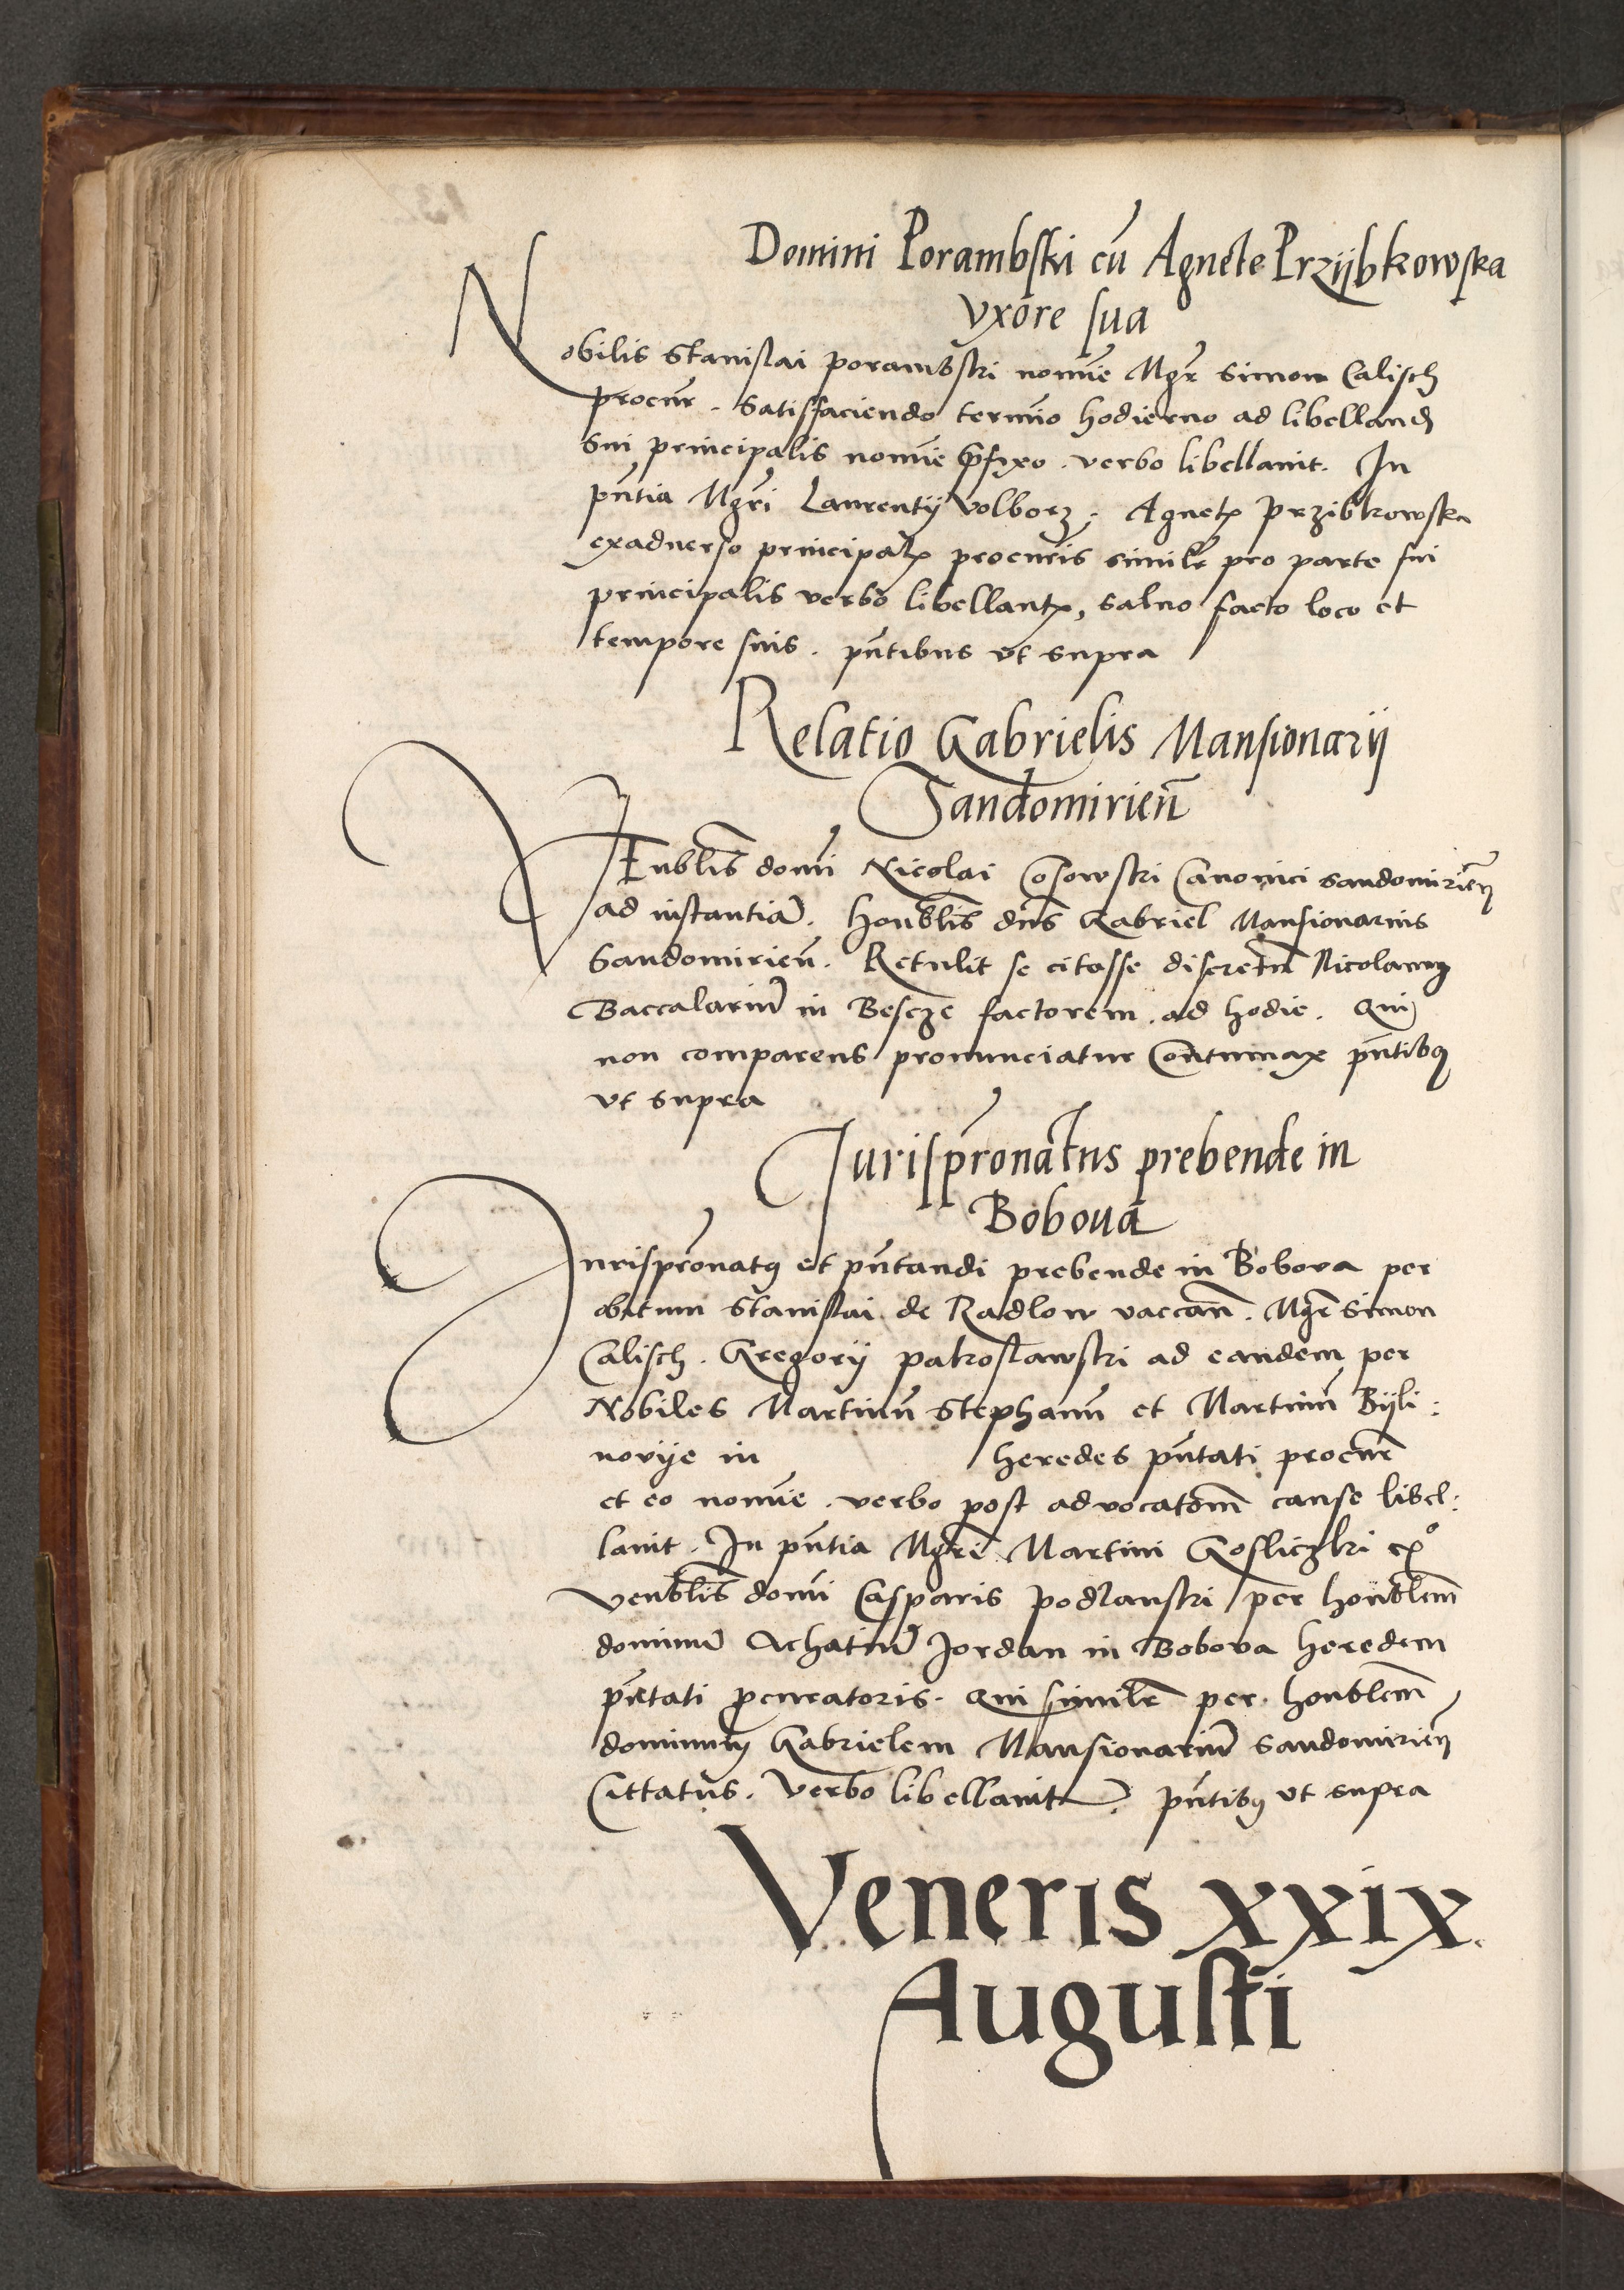 Domini Porambski cū Agnete Przÿbkowska
vxore sua
Nobilis Stanislai porambski nomīe Mgr̄ Simon Calisch
procur̄ . Satisfaciendo termīo hodierno ad libelland
Sui principalis nomīe p̄fixo . verbo libellauit . In
pn̄tia Mgr̄i Laurentij Volborz . Agnet Przibkowska
exaduerso principal procur̄is similr̄ pro parte sui
principalis verbo libellant , saluo facto loco et
tempore suis . pn̄tibus vt supra
Relatio Gabrielis Mansionarij
Sandomirien̄
VEnbl̄is domī Nicolai Cosowski Canonici sandomirien̄
ad instantiā . Honbl̄is dn̄s Gabriel Mansionarius
Sandomirien̄ . Retulit se citasse discretū Nicolaum
Baccalariū in Bescze factorem . ad hodie . Qui
non comparens pronunciatur Contumax pn̄tibq
vt supra
Jurisp̄ronatus prebende in
Bobova
Jurisp̄ronatq et pn̄tandi prebende in Bobova per
obitum Stanislai de Radlow vaccan̄ . Mgr̄ Simon
Calisch . Gregorij pakoslawski ad eandem per
Nobiles Martinū Stephanū et Martinū Bÿli :
novije in heredes pn̄tati procur̄
et eo nomīe . verbo post advocatom̄ causse libel :
lauit . In pn̄tia Mgr̄i Martini Gosliczki
venbl̄is domī Casparis podlanski per honblem̄
dominū Achatiū Jordan in Bobova heredem
pn̄tati procuratoris . Qui similr̄ per honblem̄
dominum Gabrielem Mansionariū Sandomirien̄
Cittatus . Verbo libellauit . pn̄tibq vt supra
Veneris xxix .
Augusti